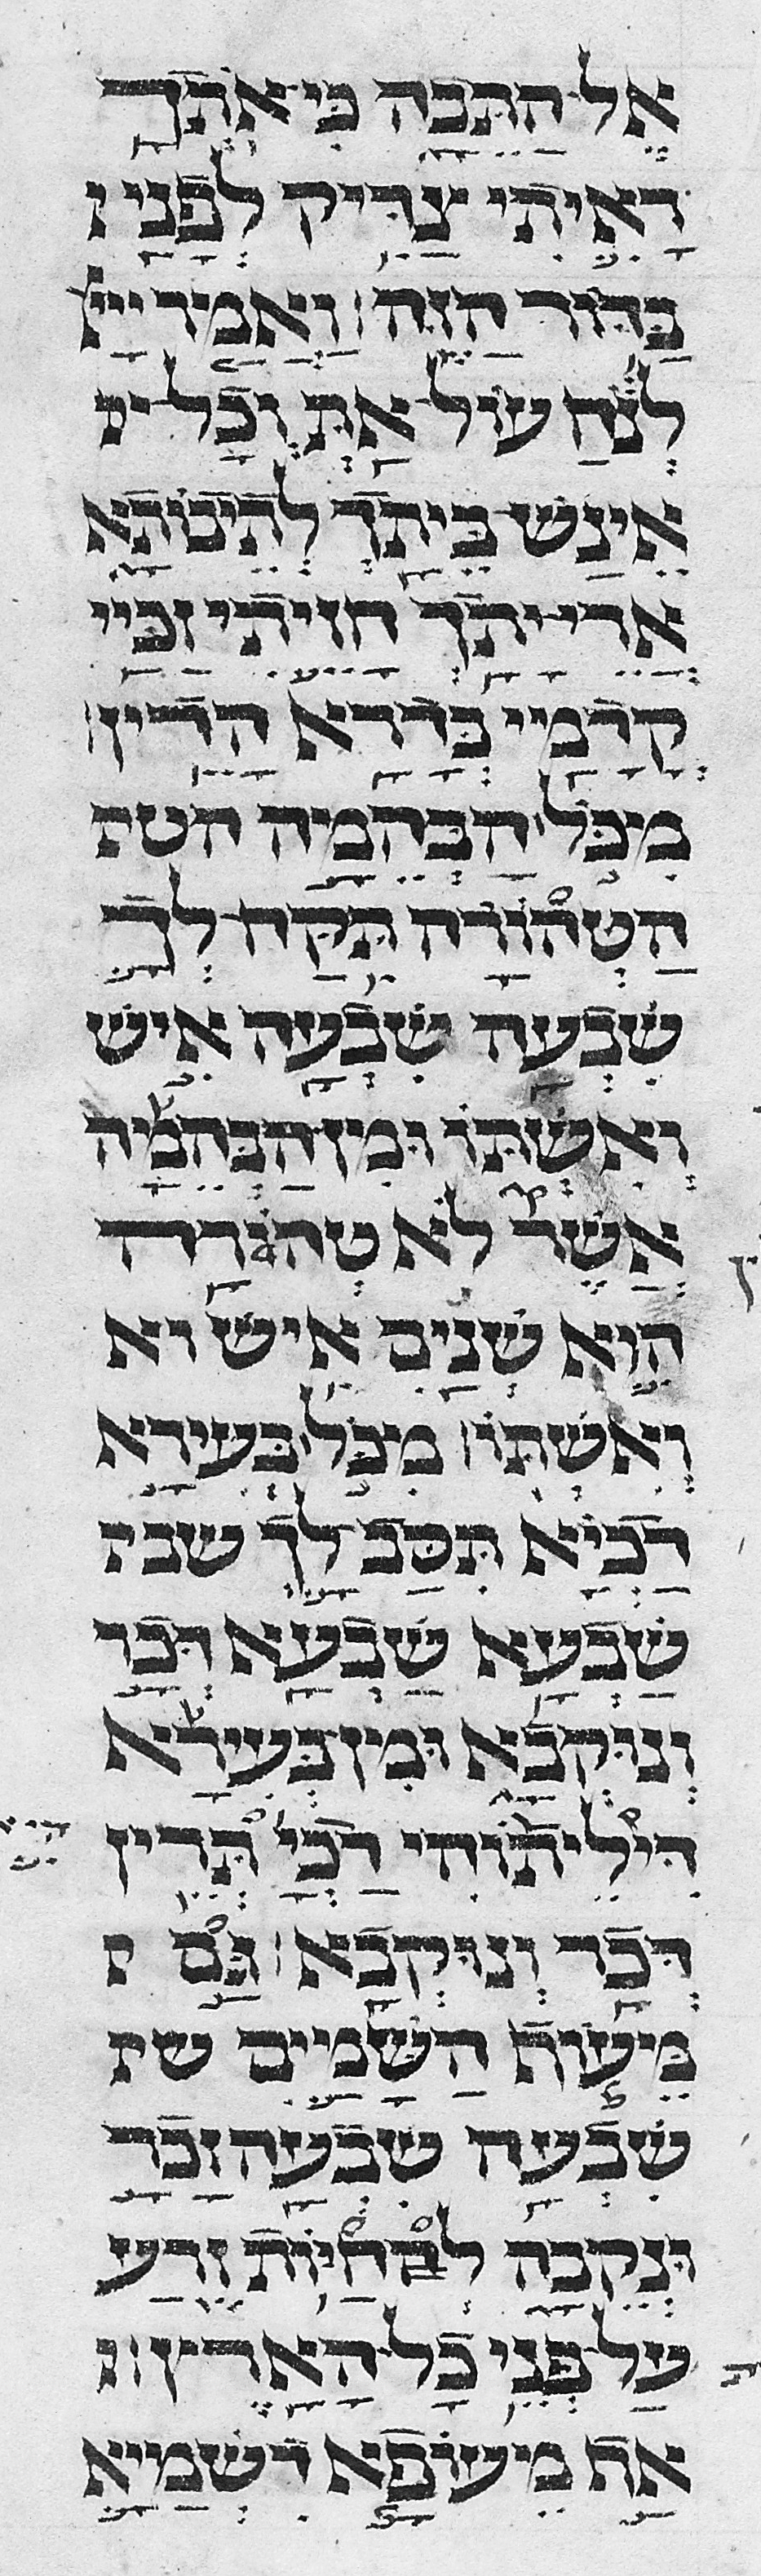 אל התבה כי אתך
ראיתי צדיק לפני ו
בדור הזה ואמר ייי
לנח עול את וכל י
אינש ביתך לתיבותא
ארי יתך חזיתי זכיי
קדמיי בדרא הדין
מכל הבהמה הט
הטהורה תקח לך
שבעה שבעה איש
ואשתו ומן הבהמה
אשר לא טהורה
הוא שנים איש וא
ואשתו מכל בעירא
דכיא תסב לך שב
שבעא שבעא דכר
ונוקבא ומן בעירא
דילׄיתוהי דכי תרין
דכר ונוקבא גם
מעוף השמים ש
שבעה שבעה זכר
ונקבה לחיות זרע
על פני כל הארץ
אף מעופא דשמיא